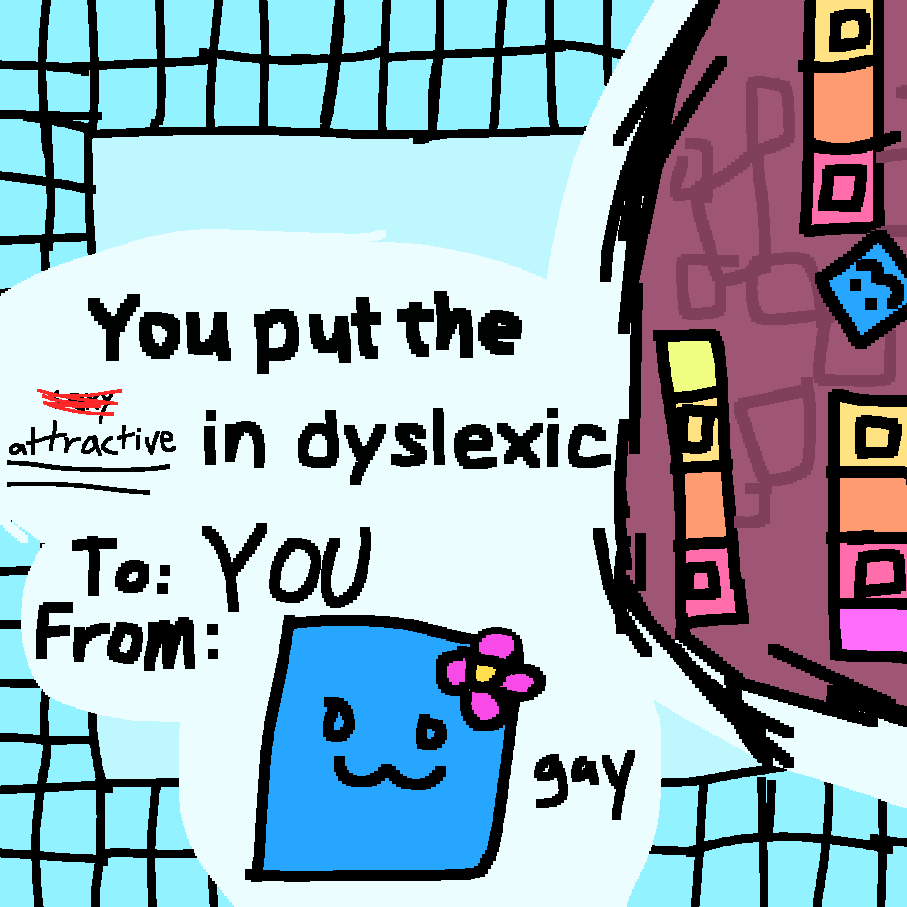 You put the
attractive in dyslexic
To: YOU
From:
gay